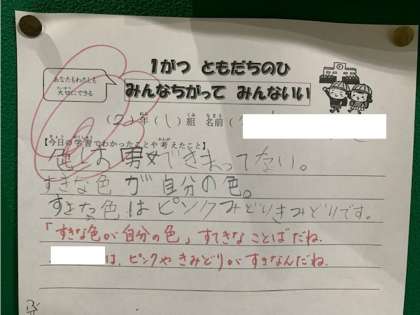 あなたもわたしも
大切にできる
1がつ ともだちのひ
みんなちがって みんないい
(2)年(1)組 名前(
【今日の学習でわかったことや考えたこと】
色とは男女できまってない。
すきな色が自分の色。
すきな色はピンクみどりきみどりです。
「すきな色が自分の色」すてきなことばだね。
は、ピンクやきみどりがすきなんだね。